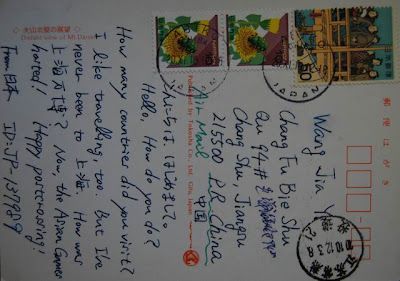 大山北壁の展望
Distant view of Mt Daisen
郵便はがき
こんにちは。はじめまして。
Hello. How do you do?
How many countries did you visit?
I like travelling, too. But I've
never been to 上海. How was
上海万博? Now, the Asian Games
hoted! Happy postcrossing!
From 日本 ID: JP-137789
Air Mail
Wang Jia Yi
Chang Fu Bie Shu
Qu 94#
Chang Shu, Jiangsu
215500 P.R. China
中国